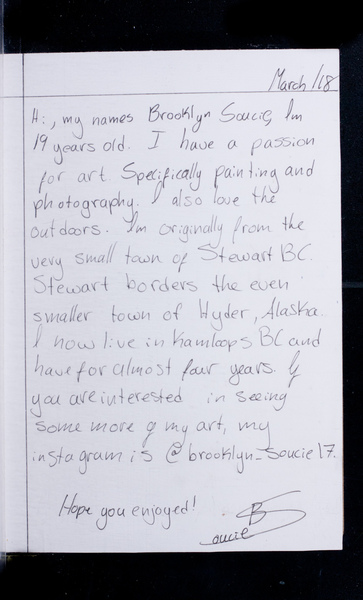 March /18
Hi, my names Brooklyn Soucie, Im
19 years old. I have a passion
for art. Specifically painting and
photography. I also love the
outdoors. Im originally from the
very small town of Stewart BC.
Stewart borders the even
smaller town of Hyder, Alaska.
I now live in Kamloops BC and
have for almost four years. If
you are interested in seeing
some more of my art, my
instagram is @brooklyn_soucie17.
Hope you enjoyed!
B Soucie